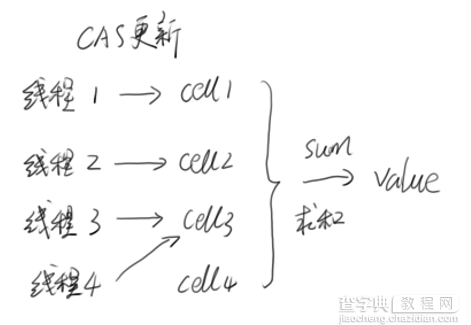 CAS更新
线程1 → cell1
线程2 → cell2
sum
value
线程3 → cell3
求和
线程4 cell4
查字典 教程网
jiaocheng.chazidian.com